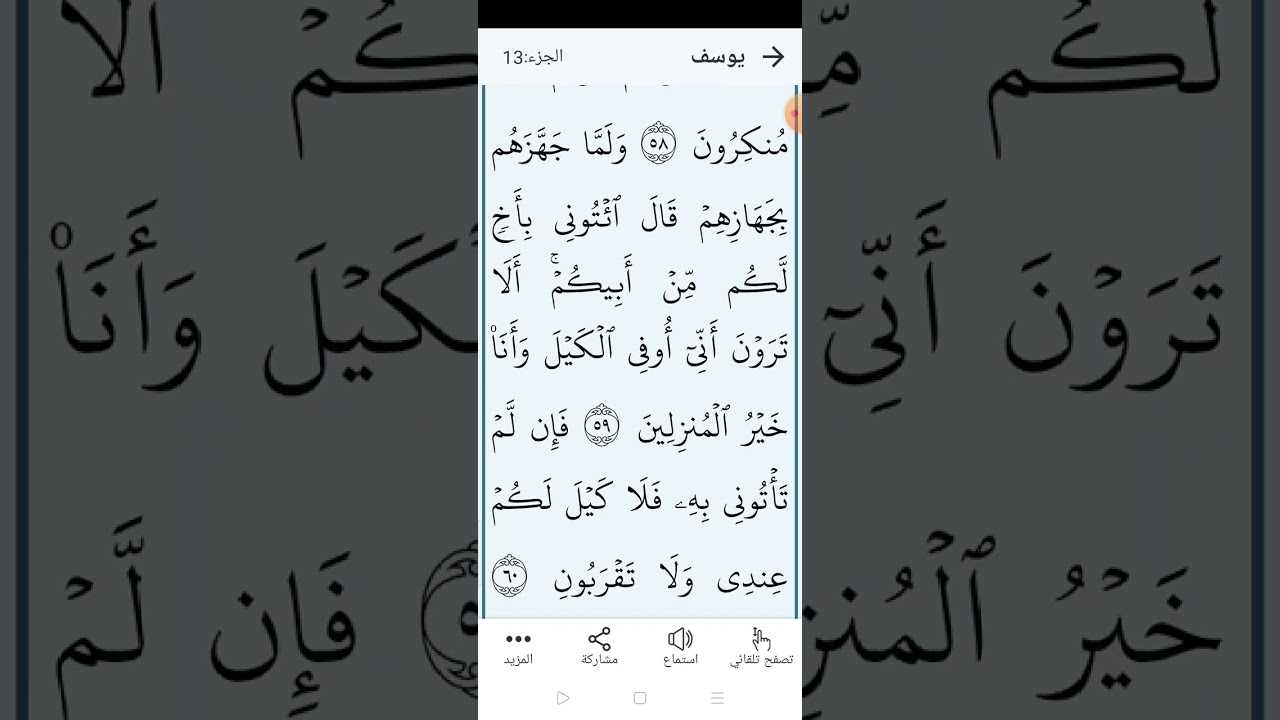 يوسف
الجزء:13
مُنكِرُونَ ٥٨ وَلَمَّا جَهَّزَهُم
بِجَهَازِهِمۡ قَالَ ٱئۡتُونِي بِأَخٖ
لَّكُم مِّنۡ أَبِيكُمۡۚ أَلَا
تَرَوۡنَ أَنِّيٓ أُوفِي ٱلۡكَيۡلَ وَأَنَا۠
خَيۡرُ ٱلۡمُنزِلِينَ ٥٩ فَإِن لَّمۡ
تَأۡتُونِي بِهِۦ فَلَا كَيۡلَ لَكُمۡ
عِندِي وَلَا تَقۡرَبُونِ ٦٠
تصفح تلقائي
استماع
مشاركة
المزيد